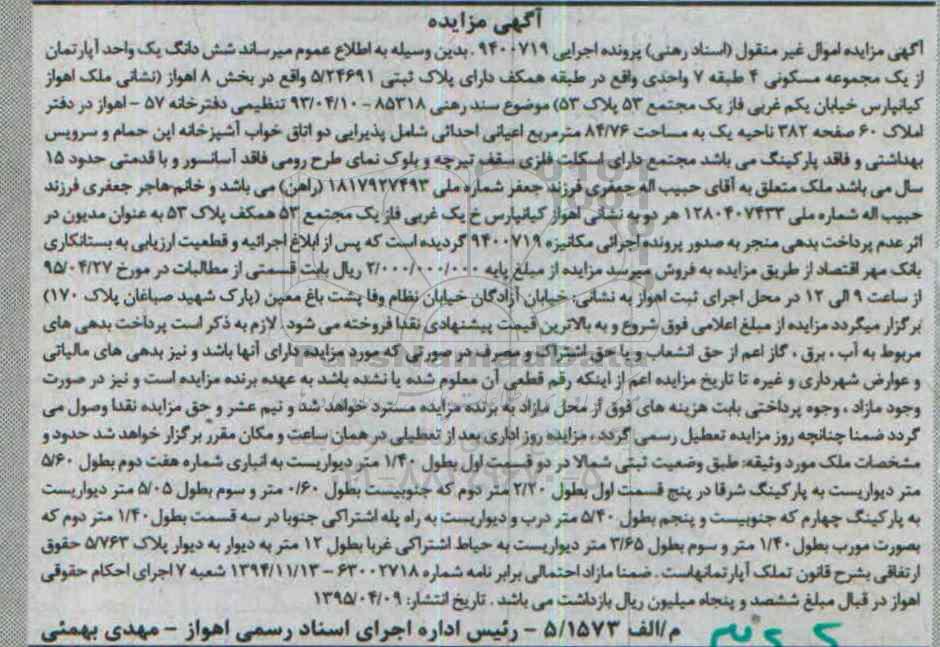 آگهی مزایده
آگهی مزایده اموال غیر منقول (اسناد رهنی) پرونده اجرایی ۹۴۰۰۷۱۹ . بدین وسیله به اطلاع عموم میرساند شش دانگ یک واحد آپارتمان
از یک مجموعه مسکونی ۴ طبقه ۷ واحدی واقع در طبقه همکف دارای پلاک ثبتی ۵/۲۴۶۹۱ واقع در بخش ۸ اهواز (نشانی ملک اهواز
کیانپارس خیابان یکم غربی فاز یک مجتمع ۵۳ پلاک ۵۳) موضوع سند رهنی ۸۵۳۱۸ - ۹۳/۰۴/۱۰ تنظیمی دفترخانه ۵۷ - اهواز در دفتر
املاک ۶۰ صفحه ۳۸۲ ناحیه یک به مساحت ۸۴/۷۶ مترمربع اعیانی احداثی شامل پذیرایی دو اتاق خواب آشپزخانه اپن حمام و سرویس
بهداشتی و فاقد پارکینگ می باشد مجتمع دارای اسکلت فلزی سقف تیرچه و بلوک نمای طرح رومی فاقد آسانسور و با قدمتی حدود ۱۵
سال می باشد ملک متعلق به آقای حبیب اله جعفری فرزند جعفر شماره ملی ۱۸۱۷۹۲۷۴۹۳ (راهن) می باشد و خانم هاجر جعفری فرزند
حبیب اله شماره ملی ۱۲۸۰۴۰۷۴۳۳ هر دو به نشانی اهواز کیانپارس خ یک غربی فاز یک مجتمع ۵۳ همکف پلاک ۵۳ به عنوان مدیون در
اثر عدم پرداخت بدهی منجر به صدور پرونده اجرائی مکانیزه ۹۴۰۰۷۱۹ گردیده است که پس از ابلاغ اجرائیه و قطعیت ارزیابی به بستانکاری
بانک مهر اقتصاد از طریق مزایده به فروش میرسد مزایده از مبلغ پایه ۲/۰۰۰/۰۰۰/۰۰۰ ریال بابت قسمتی از مطالبات در مورخ ۹۵/۰۴/۲۷
از ساعت ۹ الی ۱۲ در محل اجرای ثبت اهواز به نشانی: خیابان آزادگان خیابان نظام وفا پشت باغ معین (پارک شهید صباغان پلاک ۱۷۰)
برگزار میگردد مزایده از مبلغ اعلامی فوق شروع و به بالاترین قیمت پیشنهادی نقدا فروخته می شود . لازم به ذکر است پرداخت بدهی های
مربوط به آب ، برق ، گاز اعم از حق انشعاب و یا حق اشتراک و مصرف در صورتی که مورد مزایده دارای آنها باشد و نیز بدهی های مالیاتی
و عوارض شهرداری و غیره تا تاریخ مزایده اعم از اینکه رقم قطعی آن معلوم شده یا نشده باشد به عهده برنده مزایده است و نیز در صورت
وجود مازاد ، وجوه پرداختی بابت هزینه های فوق از محل مازاد به برنده مزایده مسترد خواهد شد و نیم عشر و حق مزایده نقدا وصول می
گردد ضمنا چنانچه روز مزایده تعطیل رسمی گردد ، مزایده روز اداری بعد از تعطیلی در همان ساعت و مکان مقرر برگزار خواهد شد حدود و
مشخصات ملک مورد وثیقه: طبق وضعیت ثبتی شمالا در دو قسمت اول بطول ۱/۴۰ متر دیواریست به انباری شماره هفت دوم بطول ۵/۶۰
متر دیواریست به پارکینگ شرقا در پنج قسمت اول بطول ۲/۲۰ متر دوم که جنوبیست بطول ۰/۶۰ متر و سوم بطول ۵/۰۵ متر دیواریست
به پارکینگ چهارم که جنوبیست و پنجم بطول ۵/۴۰ متر درب و دیواریست به راه پله اشتراکی جنوبا در سه قسمت بطول ۱/۴۰ متر دوم که
بصورت مورب بطول ۱/۴۰ متر و سوم بطول ۳/۶۵ متر دیواریست به حیاط اشتراکی غربا بطول ۱۲ متر به دیوار به دیوار پلاک ۵/۷۶۳ حقوق
ارتفاقی بشرح قانون تملک آپارتمانهاست . ضمنا مازاد احتمالی برابر نامه شماره ۶۳۰۰۲۷۱۸ - ۱۳۹۴/۱۱/۱۳ شعبه ۷ اجرای احکام حقوقی
اهواز در قبال مبلغ ششصد و پنجاه میلیون ریال بازداشت می باشد . تاریخ انتشار: ۱۳۹۵/۰۴/۰۹
م/الف ۵/۱۵۷۳ - رئیس اداره اجرای اسناد رسمی اهواز - مهدی بهمئی